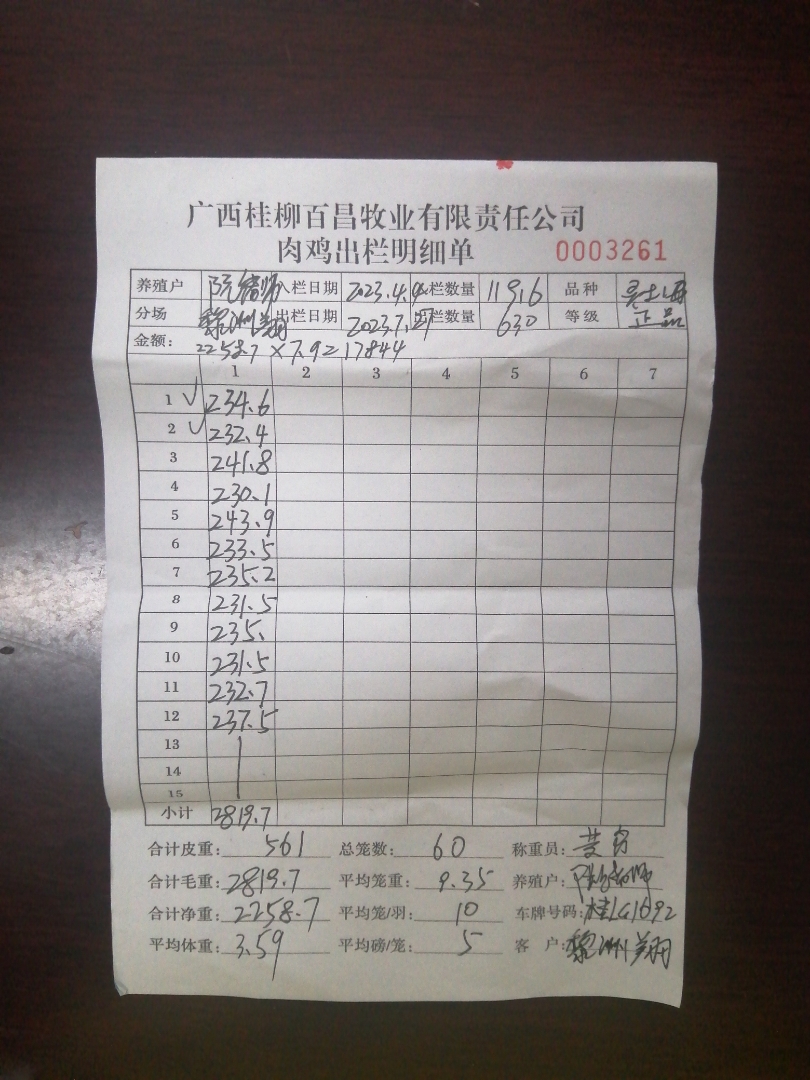 广西桂柳百昌牧业有限责任公司
肉鸡出栏明细单 0003261
养殖户 阮 师 入栏日期 2023.4.4 栏数量 11916 品种
分场 黎洲翔 出栏日期 2023.7.27 出栏数量 630 等级 正品
金额: 2258.7×7.9=17844
1 2 3 4 5 6 7
1 √ 234.6
2 √ 232.4
3 241.8
4 230.1
5 243.9
6 233.5
7 235.2
8 231.5
9 235.
10 231.5
11 232.7
12 237.5
13
14
15
小计 2819.7
合计皮重: 561 总笼数: 60 称重员:
合计毛重: 2819.7 平均笼重: 9.35 养殖户:
合计净重: 2258.7 平均笼/羽: 10 车牌号码: 桂LG1692
平均体重: 3.59 平均磅/笼: 5 客 户: 黎洲翔